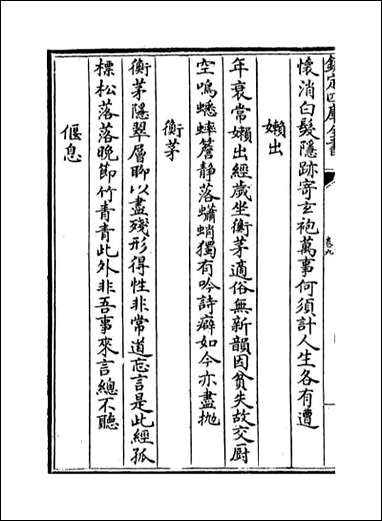 欽定四庫全書
卷九
懷消白髮隱跡寄玄袍萬事何須計人生各有遭
嬾出
年衰常嬾出經歲坐衡茅適俗無新韻因貧失故交厨
空鳴蟋蟀簷静落蠨蛸獨有吟詩癖如今亦盡抛
衡茅
衡茅隱翠層聊以盡殘形得性非常道忘言是此經孤
標松落落晚節竹青青此外非吾事來言總不聽
偃息